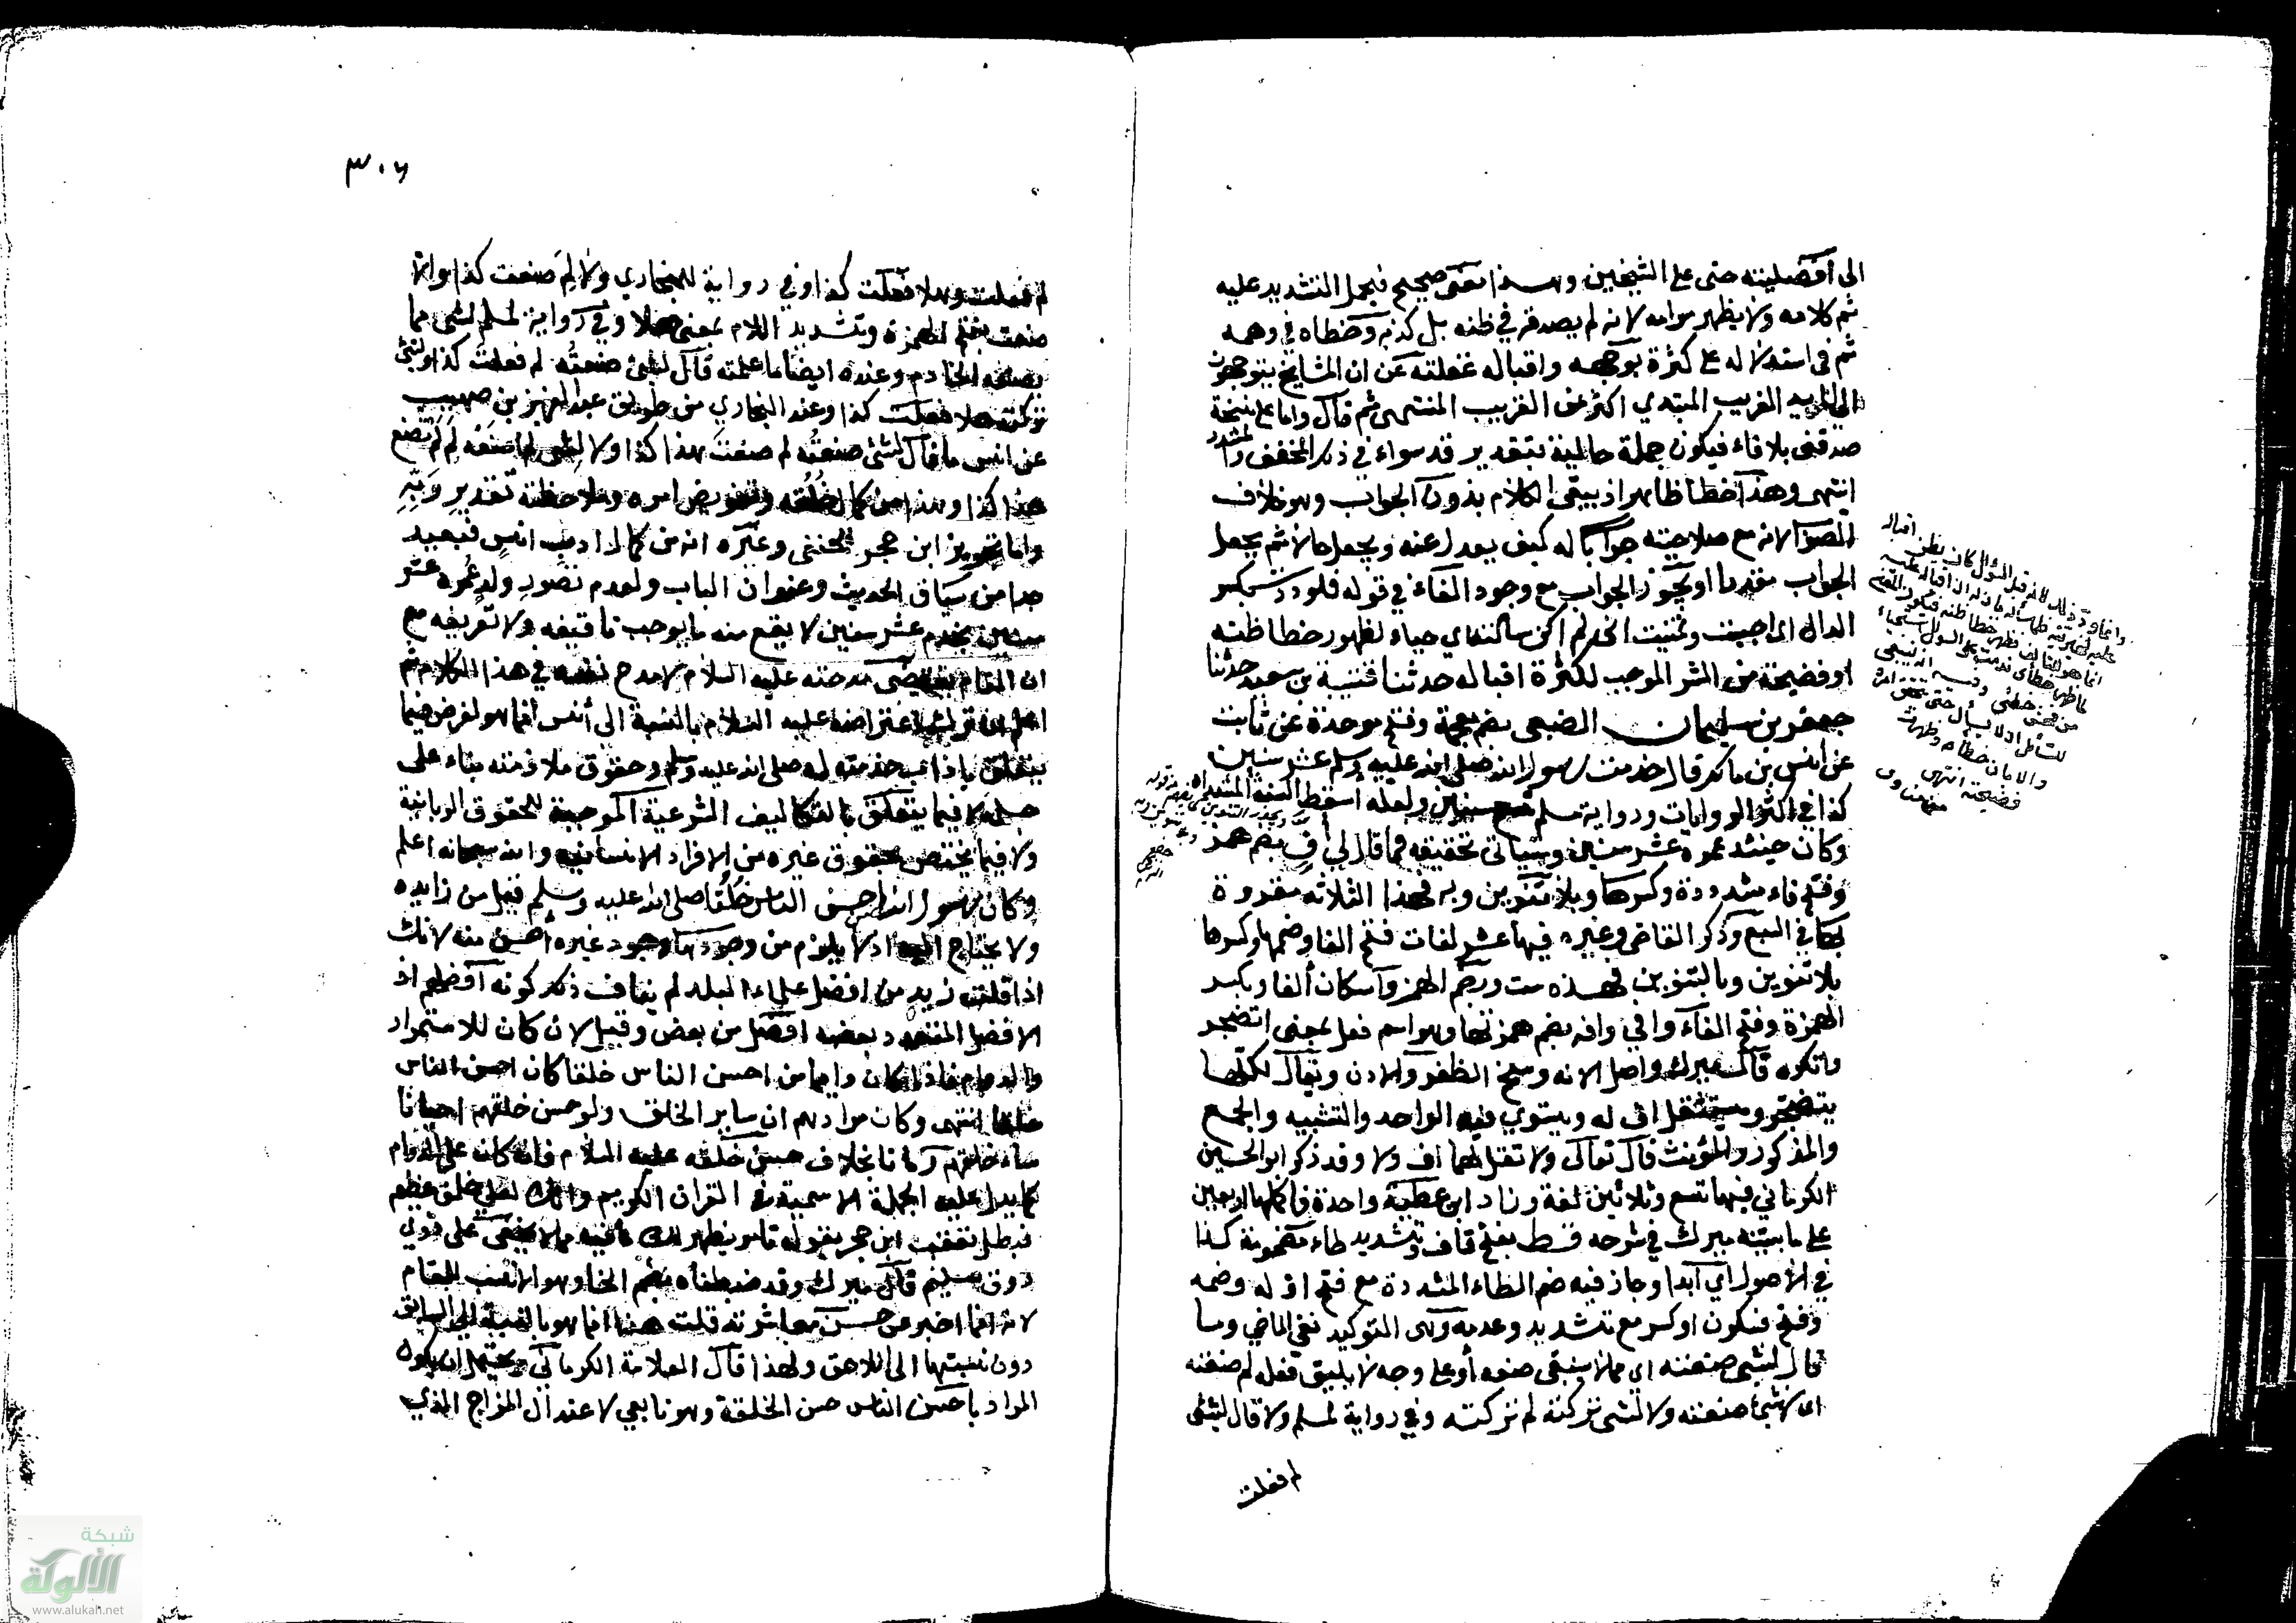 الى أفضليته حتى على الشيخين وهذا معنى صحيح فيحمل التشديد عليه
ثم كلامه ولا يظهر مرامه لانه لم يصدقه في ظنه بل كذبه وخطاه في وهمه
ثم في استدلاله على كثرة توجهه واقباله غفلته عن ان المشايخ يتوجهون
الى المريد الغريب المبتدي اكثر من القريب المنتهى ثم قال واما على نسخة
صدقني بلا فاء فيكون جملة حالية بتقدير قد سواء في ذلك المخفف والمشدد
انتهى وهذا خطا ظاهر اذ يبقى الكلام بدون الجواب وهو خلاف
الصواب لانه مع صلاحيته جوابا له كيف يعدل عنه ويجعل حالا ثم يجعل
الجواب مقدرا او يجوز الجواب مع وجود الفاء في قوله فلوددت بكسر
الدال اى احببت وتمنيت انى لم اكن سالته اى حياء لظهور خطا ظنه
او فضيحة من الشر الموجب لكثرة اقباله حدثنا قتيبة بن سعيد حدثنا
جعفر بن سليمان الضبعى بضم معجمة وفتح موحدة عن ثابت
عن انس بن مالك قال خدمت رسول الله صلى الله عليه وسلم عشر سنين
كذا في اكثر الروايات ورواية مسلم تسع سنين ولعله أسقط السنة
وكان حينئذ عمره عشر سنين وسياتى تحقيقه فما قال لي أف بضم همز
وفتح فاء مشددة وكسرها وبلا تنوين وبه فهذه الثلاثة مقروءة
بها في السبع وذكر القاضي وغيره فيها عشر لغات فتح الفا وضمها وكسرها
بلا تنوين وبالتنوين فهذه ست وبضم الهمز واسكان الفا وبكسر
الهمزة وفتح الفاء وافي وافه بضم همزتها وهو اسم فعل بمعنى اتضجر
واتكره قال ميرك واصل الافه وسخ الظفر والاذن ويقال لكل ما
يتضجر ويستثقل اف له ويستوي فيه الواحد والتثنيه والجمع
والمذكر والمؤنث قال تعالى ولا تقل لهما اف ولا وقد ذكر ابو الحسين
الكرماني فيها تسع وثلاثين لغة وزاد ابن عطية واحدة فاكملها اربعين
على ما بينه ميرك في شرحه قط بفتح قاف وتشديد طاء مضمومة كذا
في الأصول اي ابدا وجاز فيه ضم الطاء المشددة مع فتح اوله وضمه
وفتح فسكون او كسر مع تشديد وعدمه وهى لتوكيد نفي الماضي وما
قال لشىء صنعته اى مما لا ينبغى صنعه أو على وجه لا يليق فعله لم صنعته
اى لاي شئ صنعته ولا لشىء تركته لم تركته وفي رواية لمسلم ولا قال لشئ
لم فعلت
٣٠٦
لم فعلت وهلا فعلت كذا وفي رواية للبخاري ولا لم صنعت كذا والا
صنعت بفتح الهمزة وتشديد اللام بمعنى هلا وفي رواية لمسلم لشى مما
يصنعه الخادم وعنده ايضا ما علمته قال لشئ صنعته لم فعلت كذا ولشئ
تركته هلا فعلت كذا وعند البخاري من طريق عبد العزيز بن صهيب
عن انس ما قال لشئ صنعته لم صنعت هذا كذا ولا لشى لم اصنعه لم لم تصنع
هذا كذا وهذا من كمال خلقه وتفويض امره وملاحظة تقدير ربه
واما تجويز ابن حجر الحنفى وغيره انه من كمال ادب انس فبعيد
جدا من سياق الحديث وعنوان الباب ولعدم تصور ولد عمره عشر
سنين يخدم عشر سنين لا يقع منه ما يوجب تافيفه ولا تقريعه مع
ان المقام يقتضى مدحته عليه السلام لا مدح نفسه في هذا الكلام ثم
اعلم ان ترك اعتراضه عليه السلام بالنسبة الى أنس انما هو لغرض فيما
يتعلق باداب خدمته له صلى الله عليه وسلم وحقوق ملازمته بناء على
حلمه لا فيما يتعلق بالتكاليف الشرعية الموجبة للحقوق الربانية
ولا فيما يختص بحقوق غيره من الافراد الانسانية والله سبحانه اعلم
وكان رسول الله احسن الناس خلقا صلى الله عليه وسلم قيل من زايده
ولا يحتاج اليه اذ لا يلزم من وجودها وجود غيره احسن منه لانك
اذا قلت زيد من افضل علماء البلد لم يناف ذلك كونه افضلهم اذ
الافضل المتعدد بعضه افضل من بعض وقيل لان كان للاستمرار
والدوام فاذا كان دايما من احسن الناس خلقا كان احسن الناس
خلقا انتهى وكان مرادهم ان ساير الخلق ولو حسن خلقهم احيانا
ساء خلقهم زمانا بخلاف حسن خلقه عليه السلام فانه كان على الدوام
كما يدل عليه الجملة الاسمية في القران الكريم وانك لعلى خلق عظيم
فبطل تعقب ابن حجر بقوله تامل يظهر لك ما فيه مما لا يخفى على ذوي
ذوق سليم قال ميرك وقد ضبطناه بضم الخا وهو الانسب للمقام
لانه انما اخبر عن حسن معاشرته قلت هذا انما هو بالنسبة الى السابق
دون نسبتها الى اللاحق ولهذا قال العلامة الكرماني ويحتمل ان يكون
المراد باحسن الناس حسن الخلقة وهو تابعي لاعتدال المزاج الذي
شبكة
الألوكة
www.alukah.net